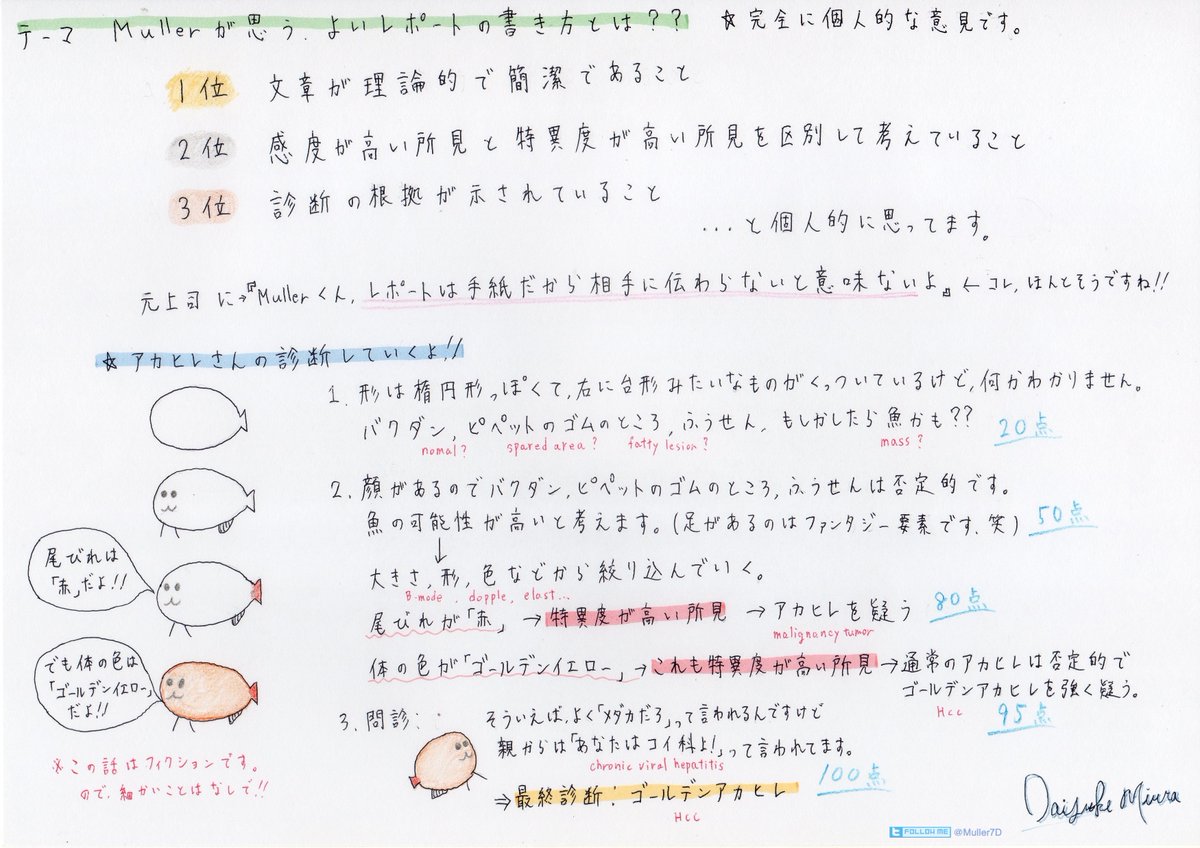 テーマ Mullerが思う、よいレポートの書き方とは?? ☆完全に個人的な意見です。
1位 文章が理論的で簡潔であること
2位 感度が高い所見と特異度が高い所見を区別して考えていること
3位 診断の根拠が示されていること
...と個人的に思ってます。
元上司に→『Mullerくん、レポートは手紙だから相手に伝わらないと意味ないよ』←コレ、ほんとそうですね!!
☆アカヒレさんの診断していくよ!!
1. 形は楕円形っぽくて、右に台形みたいなものがくっついているけど、何かわかりません。
バクダン、ピペットのゴムのところ、ふうせん、もしかしたら魚かも?? 20点
nomal? spared area? fatty lesion? mass?
2. 顔があるのでバクダン、ピペットのゴムのところ、ふうせんは否定的です。
魚の可能性が高いと考えます。(足があるのはファンタジー要素です、笑) 50点
↓
大きさ、形、色などから絞り込んでいく。
B-mode、dopple、elast...
尾びれは
「赤」だよ!!
尾びれが「赤」→特異度が高い所見→アカヒレを疑う 80点
malignancy tumor
でも体の色は
「ゴールデンイエロー」
だよ!!
体の色が「ゴールデンイエロー」→これも特異度が高い所見→通常のアカヒレは否定的で
ゴールデンアカヒレを強く疑う。
Hcc 95点
3. 問診:
そういえば、よく「メダカだろ」って言われるんですけど
親からは「あなたはコイ科よ!」って言われてます。
chronic viral hepatitis
100点
⇒最終診断:ゴールデンアカヒレ
Hcc
※この話はフィクションです。
ので、細かいことはなしで!!
Daisuke Miura
FOLLOW ME @Muller7D